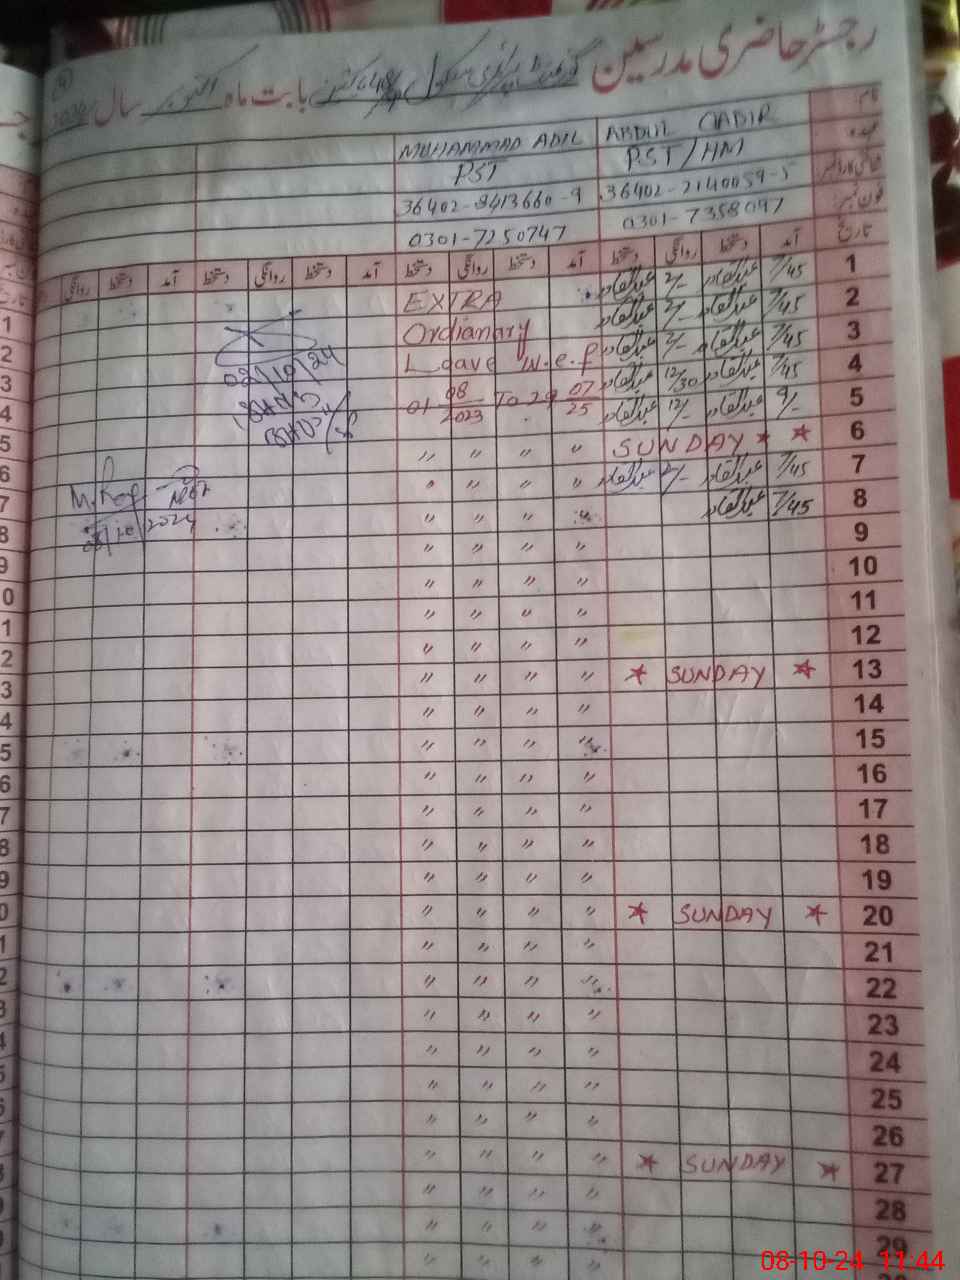 رجسٹر حاضری مدرسین گورنمنٹ پرائمری سکول بابت ماہ اکتوبر سال
نام
عہدہ
شناختی کارڈ نمبر
فون نمبر
تاریخ
ABDUL QADIR
PST/HM
36402-2140059-5
0301-7358097
MUHAMMAD ADIL
PST
36402-8413660-9
0301-7250747
آمد دستخط روانگی دستخط آمد دستخط روانگی دستخط آمد دستخط روانگی دستخط آمد دستخط روانگی
1 7/45 عبدالقادر 2/- عبدالقادر
2 7/45 عبدالقادر 2/- عبدالقادر EXTRA
3 7/45 عبدالقادر 2/- عبدالقادر Ordianary
4 7/45 عبدالقادر 12/30 عبدالقادر Leave w.e.f
5 9/- عبدالقادر 12/- عبدالقادر 01 08/2023 To 29 07/25
6 SUNDAY * * " " " "
7 7/45 عبدالقادر 2/- عبدالقادر " " " "
8 7/45 عبدالقادر " " " "
9 " " " "
10 " " " "
11 " " " "
12 " " " "
13 * SUNDAY * " " " "
14 " " " "
15 " " " "
16 " " " "
17 " " " "
18 " " " "
19 " " " "
20 * SUNDAY * " " " "
21 " " " "
22 " " " "
23 " " " "
24 " " " "
25 " " " "
26 " " " "
27 * SUNDAY * " " " "
28 " " " "
29 " " " "
02/10/24
08-10-24 11:44